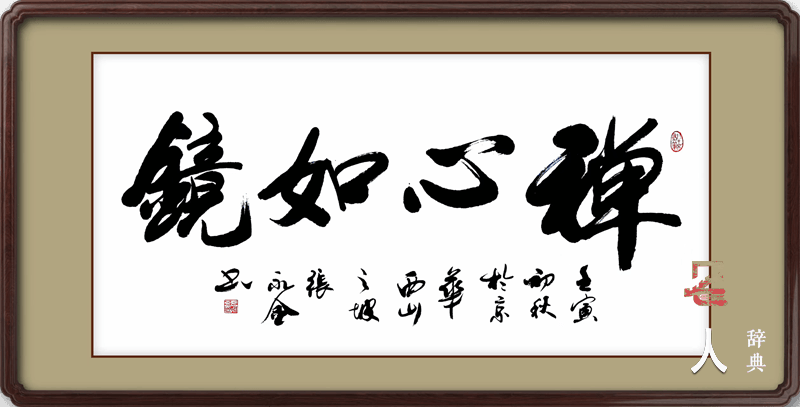 禅心如鏡
壬寅初秋於京華西山之坡張永金书
名人
辞典